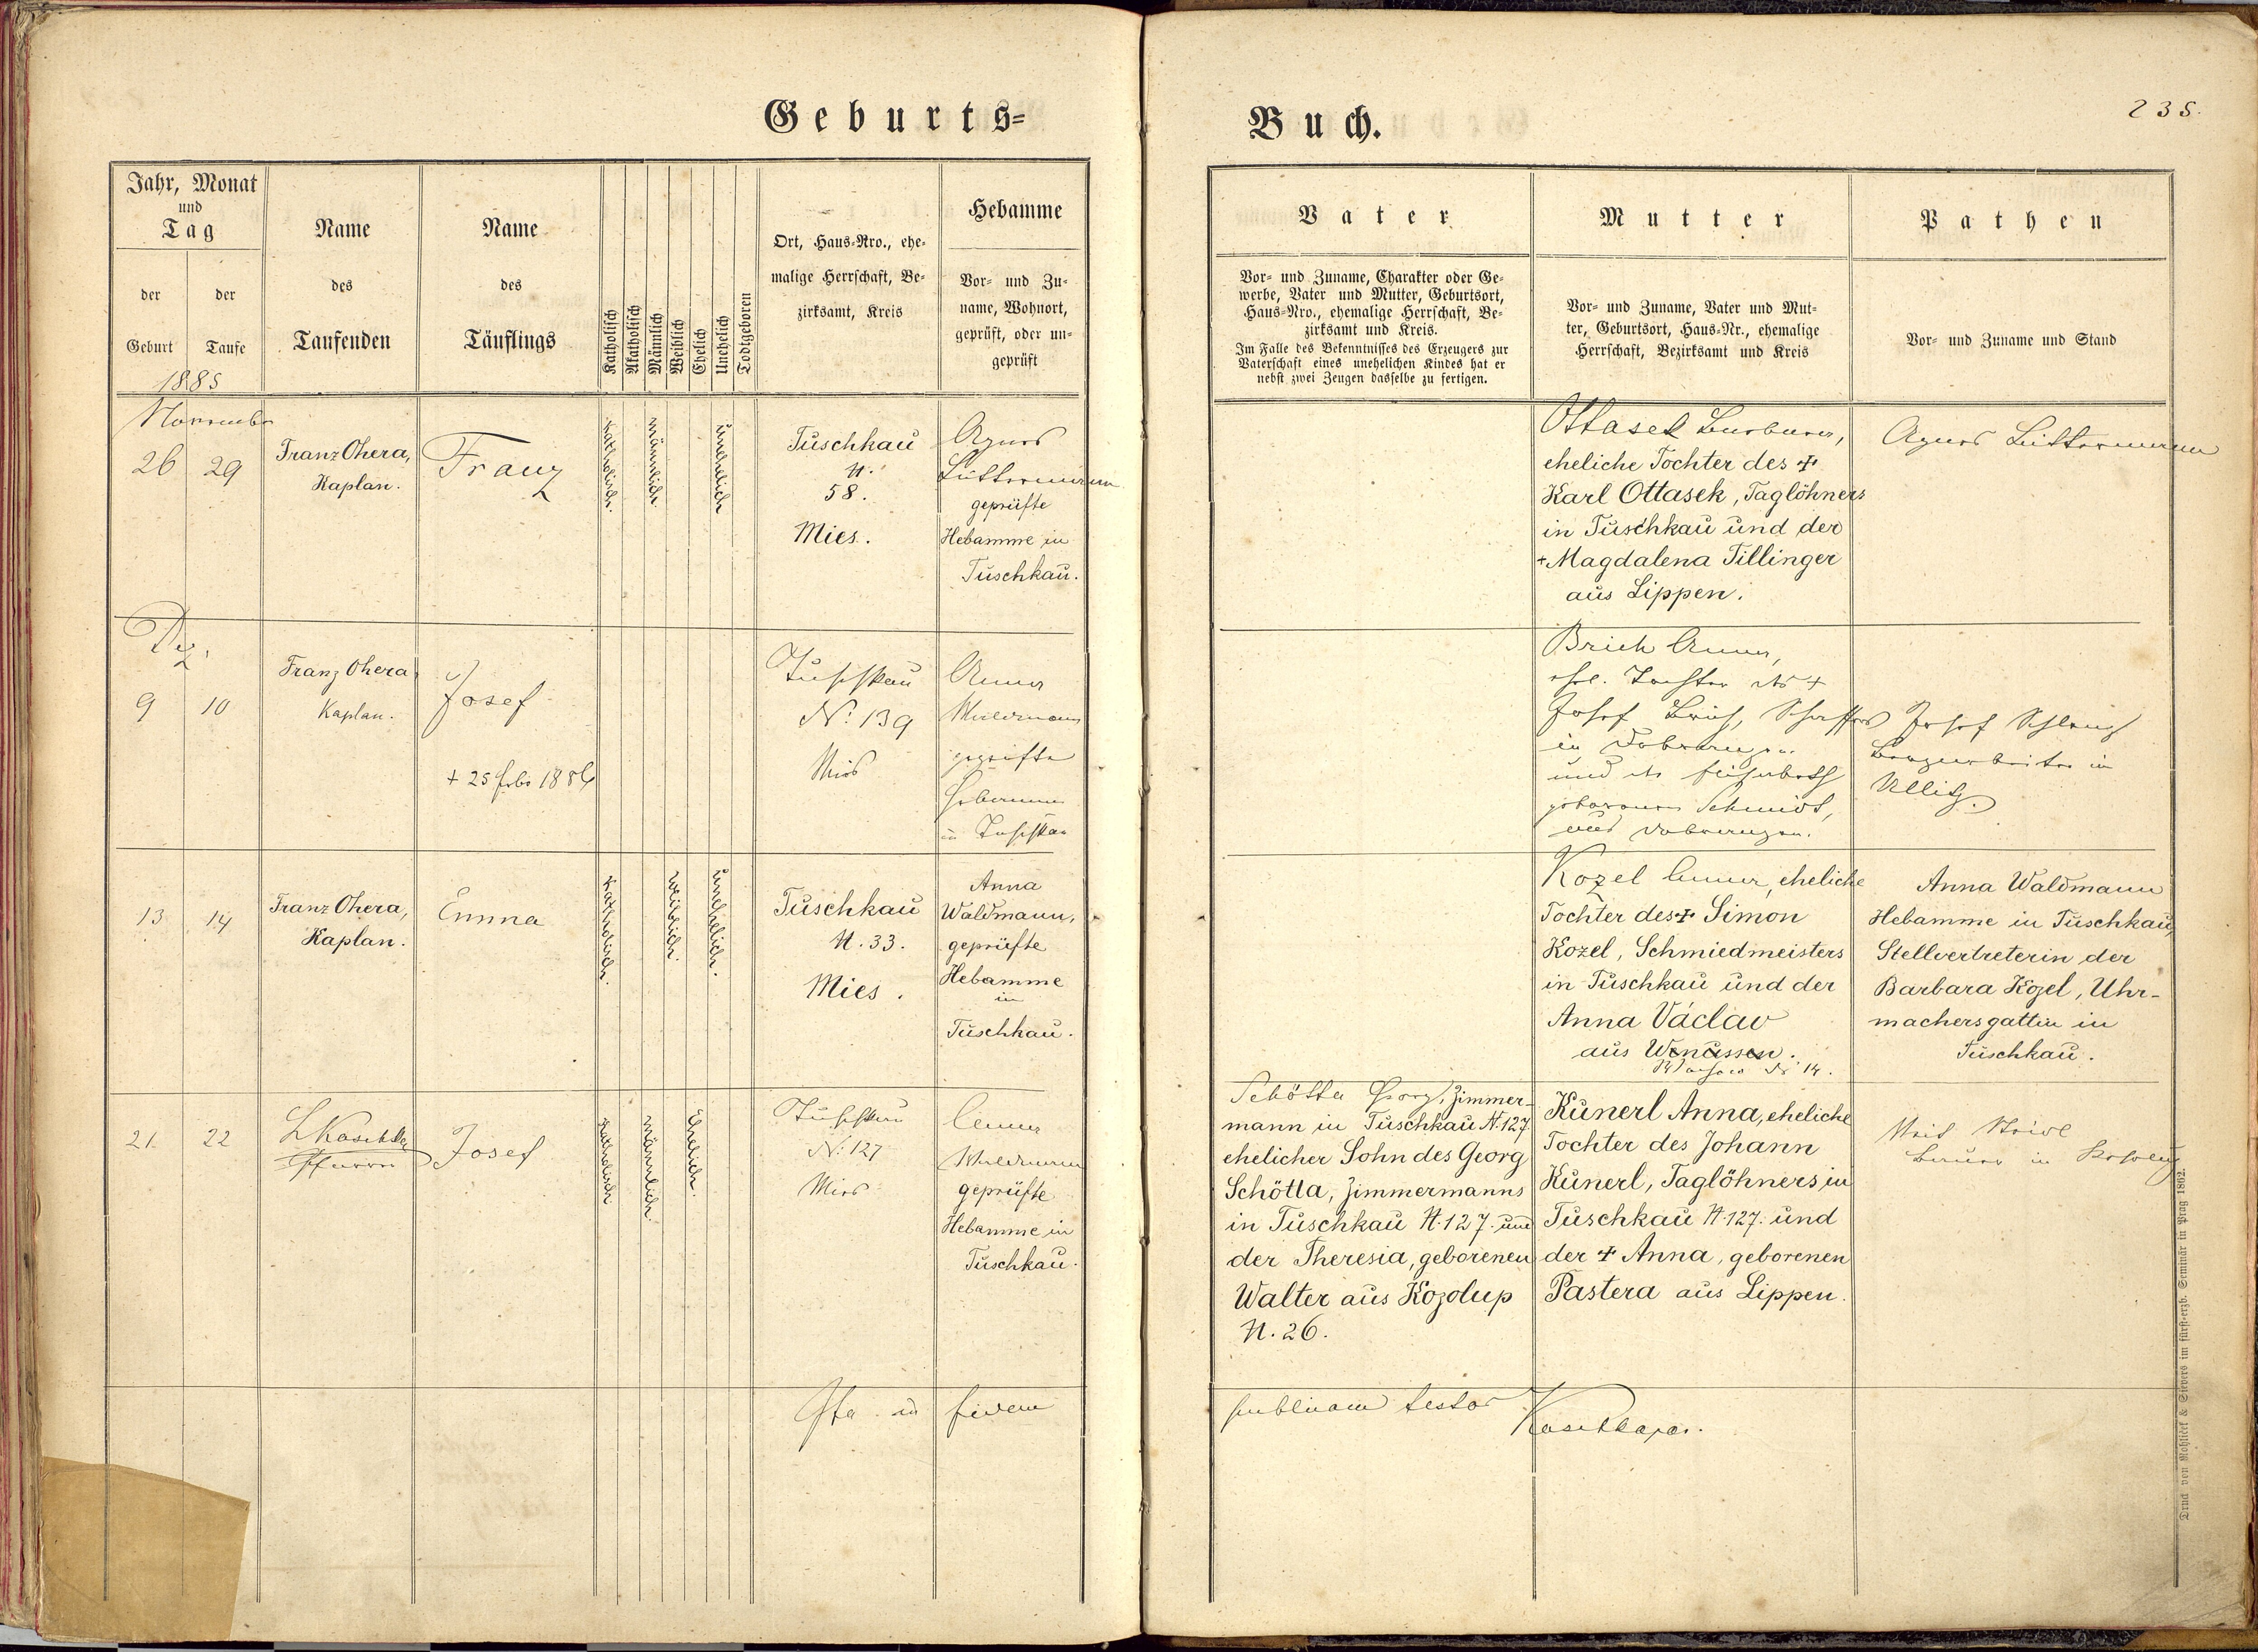 Geburts=
Buch.
235.
Jahr, Monat
und
Tag
der
Geburt
der
Taufe
1885
Name
des
Taufenden
Name
des
Täuflings
Katholisch
Akatholisch
Männlich
Weiblich
Ehelich
Unehelich
Todtgeboren
Ort, Haus=Nro., ehe=
malige Herrschaft, Be=
zirksamt, Kreis
Hebamme
Vor= und Zu=
name, Wohnort,
geprüft, oder un=
geprüft
Vater
Vor= und Zuname, Charakter oder Ge=
werbe, Vater und Mutter, Geburtsort,
Haus=Nro., ehemalige Herrschaft, Be=
zirksamt und Kreis.
Im Falle des Bekenntnisses des Erzeugers zur
Vaterschaft eines unehelichen Kindes hat er
nebst zwei Zeugen dasselbe zu fertigen.
Mutter
Vor= und Zuname, Vater und Mut=
ter, Geburtsort, Haus=Nr., ehemalige
Herrschaft, Bezirksamt und Kreis
Pathen
Vor= und Zuname und Stand
November
26
29
Franz Ohera,
Kaplan.
Franz
katholisch.
männlich.
unehelich
Tuschkau
N.
58.
Mies.
Agnes
geprüfte
Hebamme in
Tuschkau.
Ottasek Barbara,
eheliche Tochter des +
Karl Ottasek, Taglöhners
in Tuschkau und der
+ Magdalena Tillinger
aus Lippen.
Agnes
Dez.
9
10
Franz Ohera
Kaplan.
Josef
+ 25 Feb. 1886
Tuschkau
N. 139
Mies
Anna
Waldmann
geprüfte
Hebamme
in Tuschkau
Brich Anna,
ehel. Tochter des +
Josef Brich,
in
und der
geborenen Schmidt,
aus
Josef
in
Ullitz.
13
14
Franz Ohera,
Kaplan.
Emma
katholisch.
weiblich.
unehelich.
Tuschkau
N. 33.
Mies.
Anna
Waldmann,
geprüfte
Hebamme
in
Tuschkau.
Kozel Anna, eheliche
Tochter des + Simon
Kozel, Schmiedmeisters
in Tuschkau und der
Anna Václav
aus Wenussen.
14.
Anna Waldmann
Hebamme in Tuschkau,
Stellvertreterin der
Barbara Kozel, Uhr-
machersgattin in
Tuschkau.
21.
22
Pfarrer
Josef
katholisch
männlich
Ehelich.
Tuschkau
N. 127
Mies
Anna
Waldmann
geprüfte
Hebamme in
Tuschkau.
Schötta Georg, Zimmer-
mann in Tuschkau N. 127.
ehelicher Sohn des Georg
Schötta, Zimmermanns
in Tuschkau N. 127. und
der Theresia, geborenen
Walter aus Kozolup
N. 26.
Kunerl Anna, eheliche
Tochter des Johann
Kunerl, Taglöhners in
Tuschkau N. 127. und
der + Anna, geborenen
Pastera aus Lippen.
Bauer in
Ita in fidem
publicam testor
Druck von Rohlíček & Sievers im fürst=erzb. Seminär in Prag 1862.